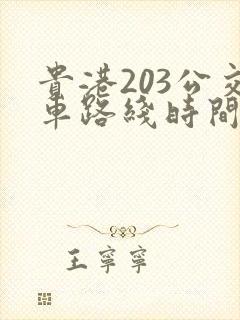 貴港203公交
車路綫時間
王寧寧